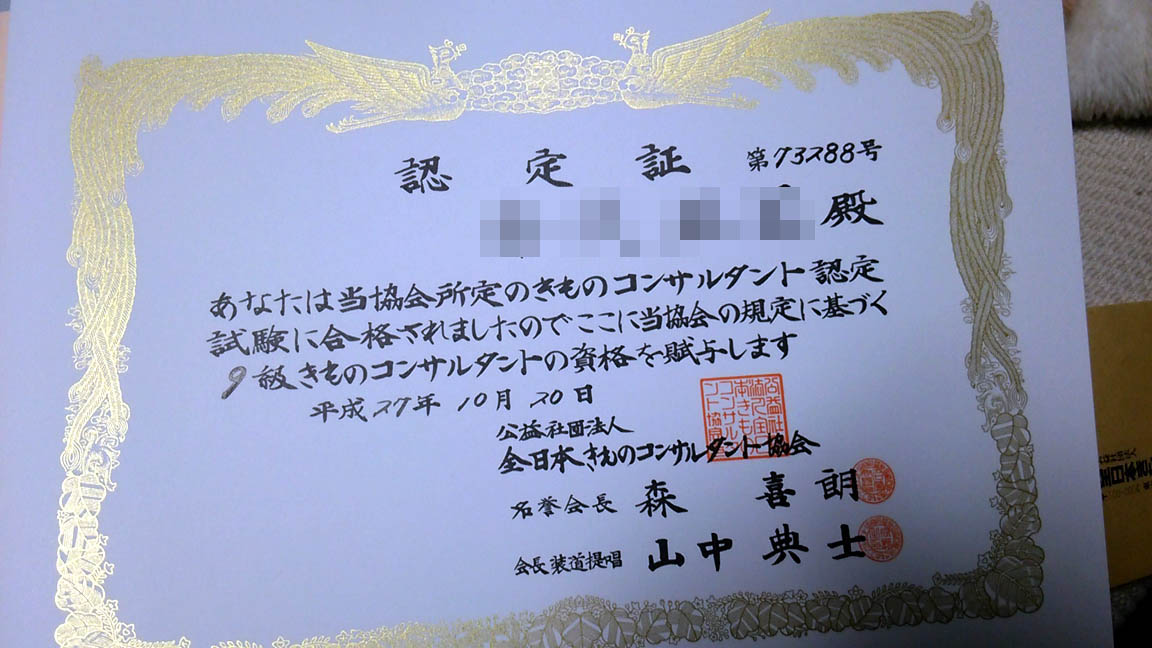 認定証
第73288号
殿
あなたは当協会所定のきものコンサルタント認定
試験に合格されましたのでここに当協会の規定に基づく
9級きものコンサルタントの資格を賦与します
平成27年10月20日
公益社団法人
全日本きものコンサルタント協会
名誉会長 森 喜朗
会長装道提唱 山中典士